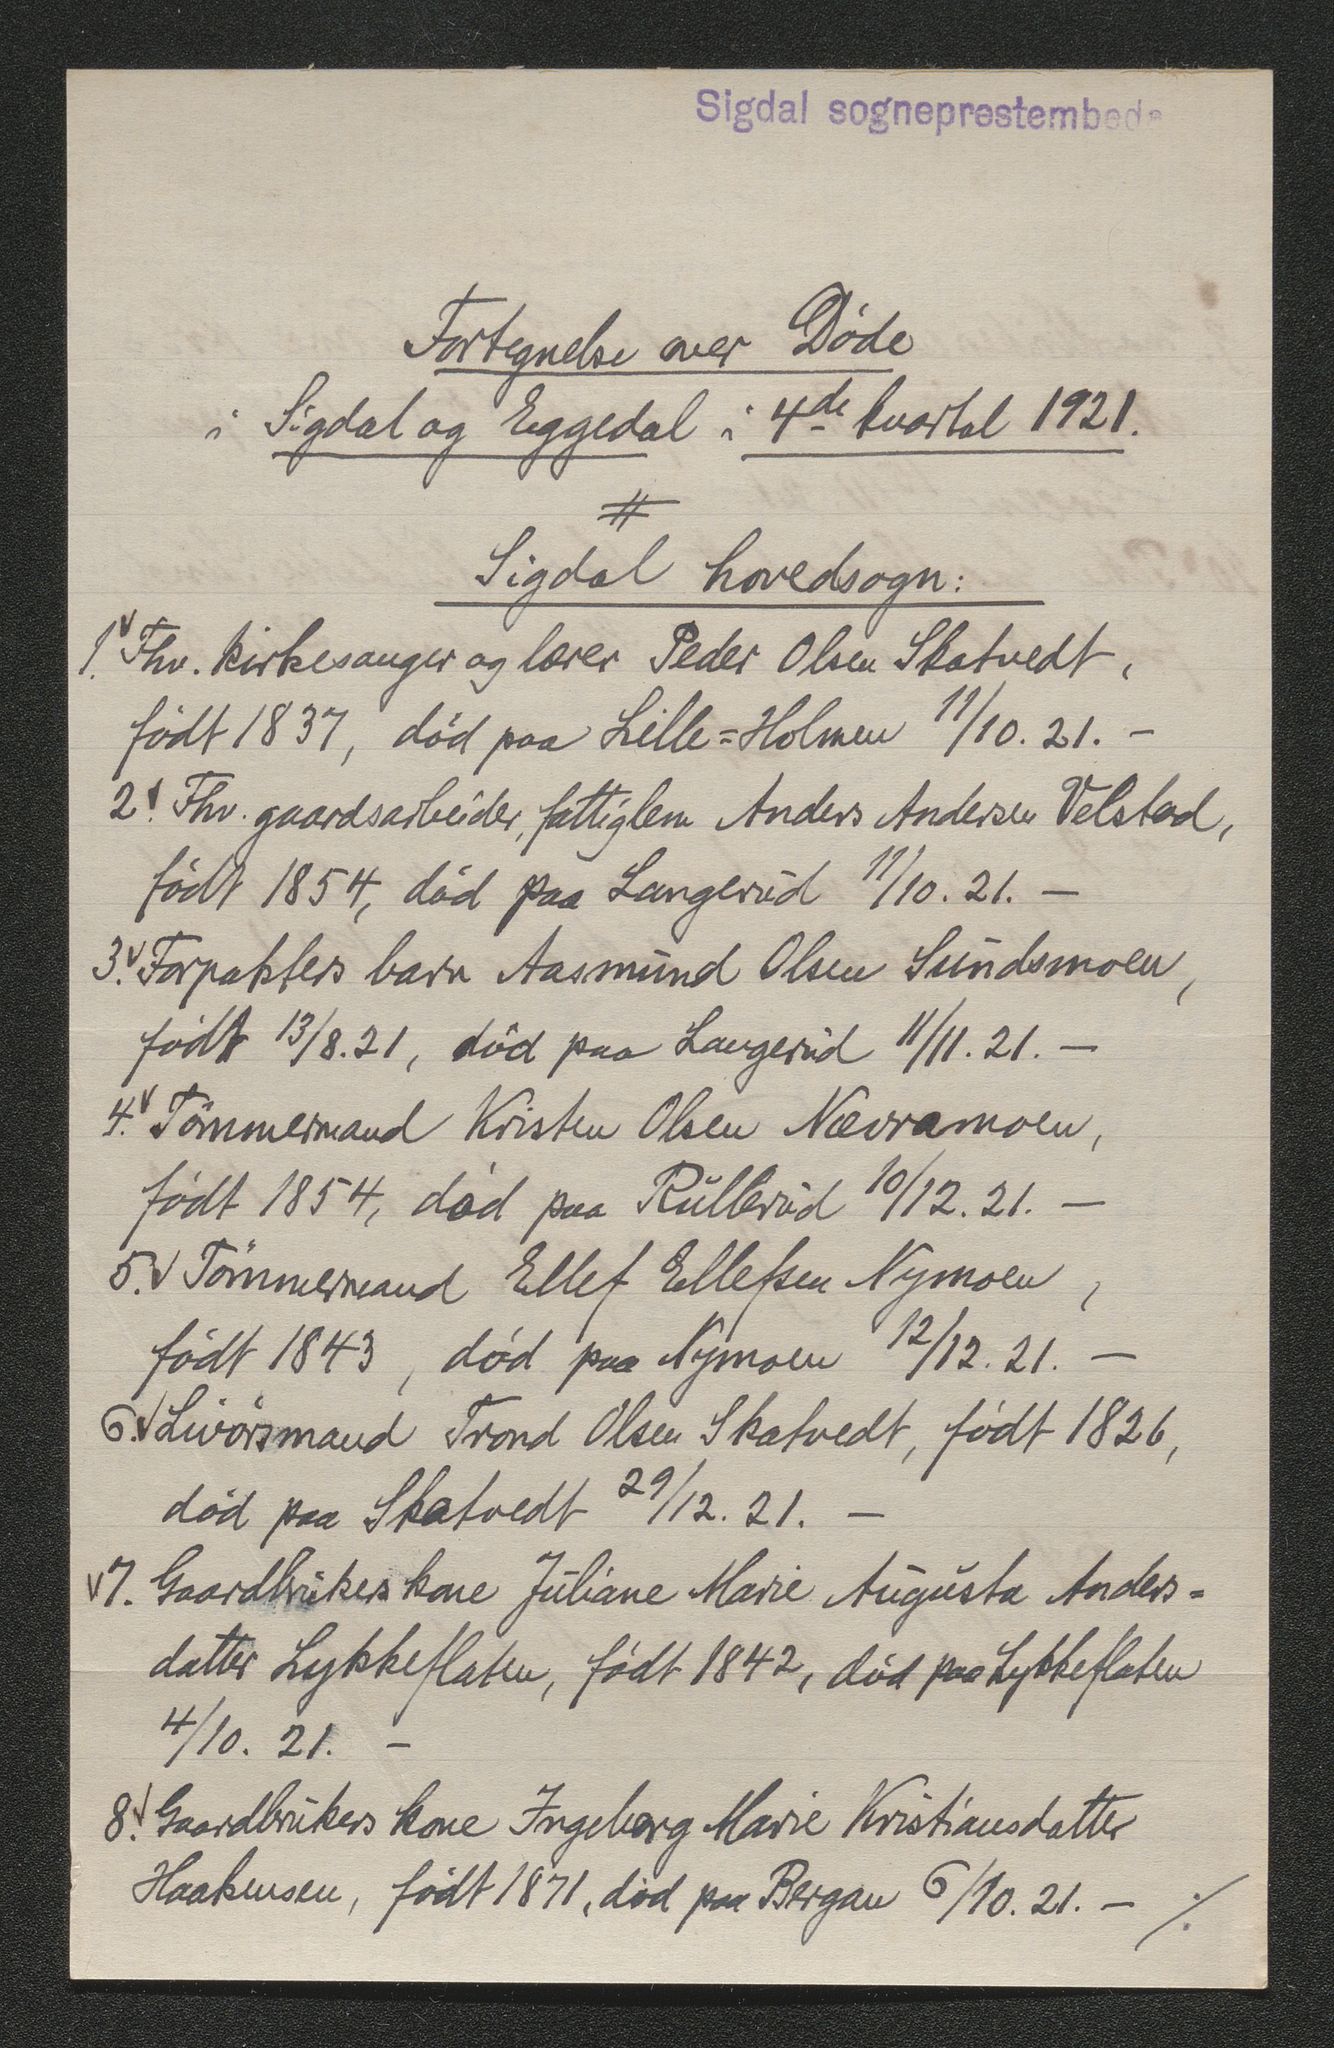 Sigdal sogneprestembede
Fortegnelse over Døde
i Sigdal og Eggedal i 4de kvartal 1921.
#
Sigdal hovedsogn:
1. Fhv. kirkesanger og lærer Peder Olsen Skatvedt,
født 1837, død paa Lille=Holmen 11/10. 21. —
2. Fhv. gaardsarbeider, fattiglem Anders Andersen Velstad,
født 1854, død paa Langerud 11/10. 21. —
3. Forpakters barn Aasmund Olsen Sundsmoen,
født 13/8. 21, død paa Langerud 11/11. 21. —
4. Tömmermand Kristen Olsen Nævramoen,
født 1854, død paa Rullerud 10/12. 21. —
5. Tömmermand Ellef Ellefsen Nymoen,
født 1843, død paa Nymoen 12/12. 21. —
6. Livörsmand Trond Olsen Skatvedt, født 1826,
død paa Skatvedt 29/12. 21. —
7. Gaardbrukers kone Juliane Marie Augusta Anders=
datter Lykkeflaten, født 1842, død paa Lykkeflaten
4/10. 21. —
8. Gaardbrukers kone Ingeborg Marie Kristiansdatter
Haakensen, født 1871, død paa Bergan 6/10. 21. — ./.